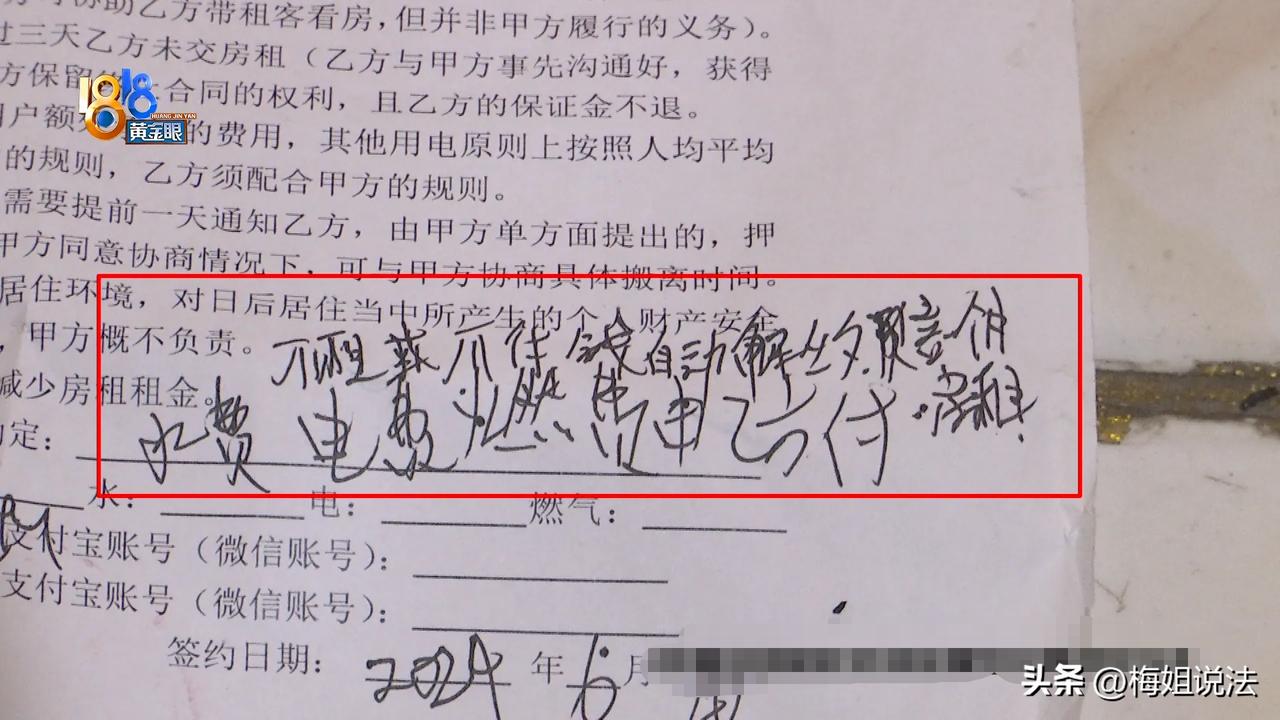 助乙方带租客看房,但并非甲方履行的义务)。
过三天乙方未交房租(乙方与甲方事先沟通好,获得
方保留 合同的权利,且乙方的保证金不退。
户额 的费用,其他用电原则上按照人均平均
的规则,乙方须配合甲方的规则。
需要提前一天通知乙方,由甲方单方面提出的,押
甲方同意协商情况下,可与甲方协商具体搬离时间。
居住环境,对日后居住当中所产生的个人财产安全
,甲方概不负责。
不租或不付钱自动解约
减少房租租金。
水费 电费 燃 费由乙方付 房租
定:
水: 电: 燃气:
支付宝账号(微信账号):
支付宝账号(微信账号):
签约日期: 2024 年 6 月
1818
HUANG JIN YAN
黄金眼
头条 @梅姐说法